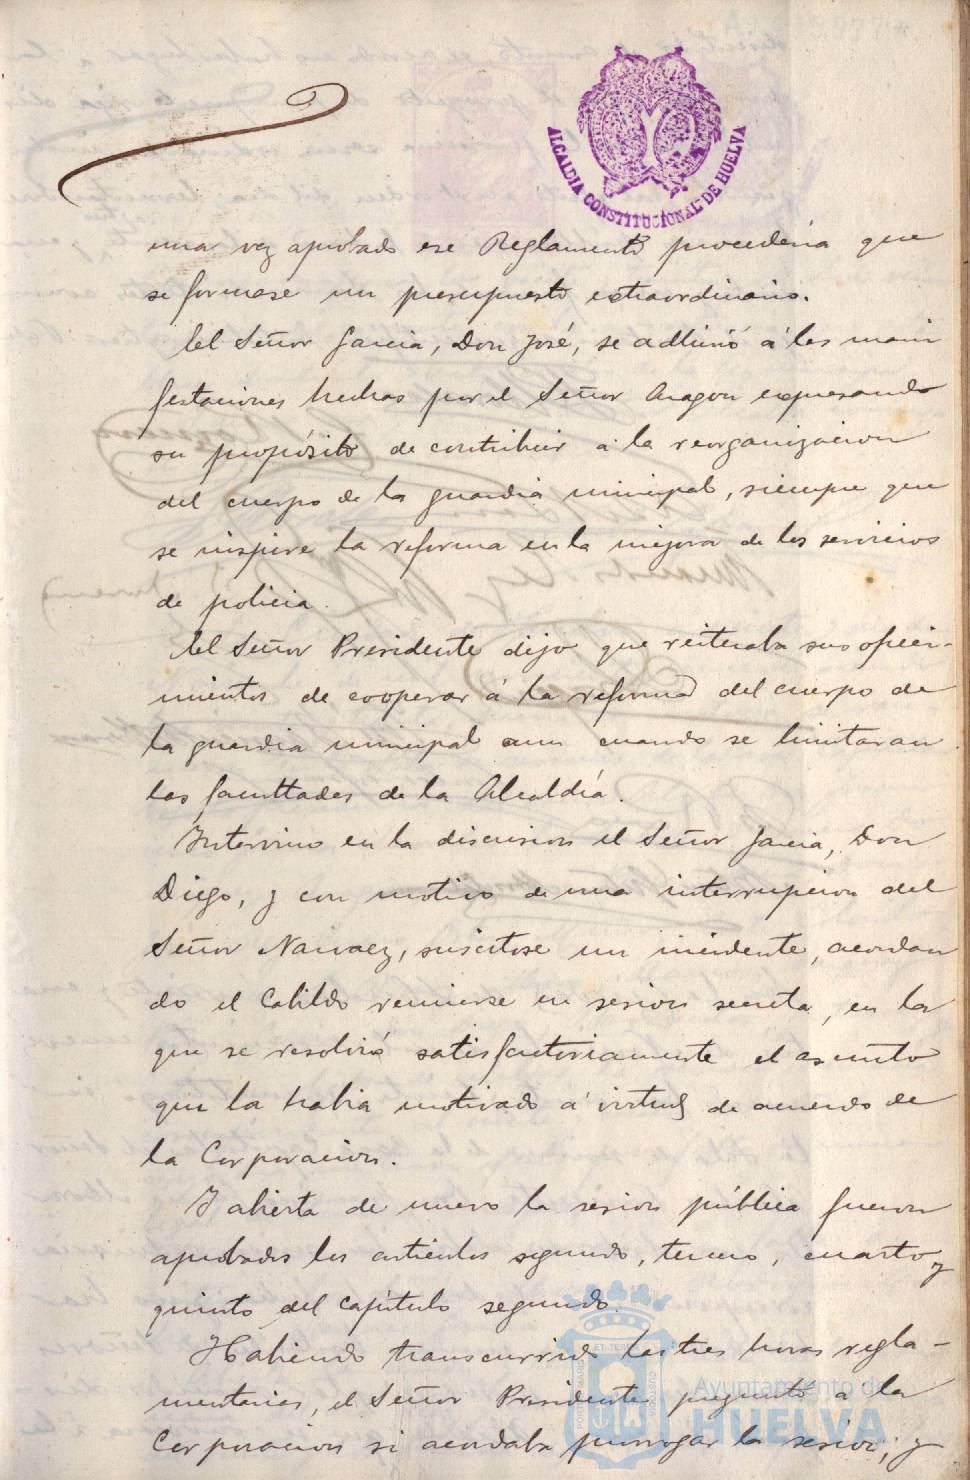 ALCALDIA CONSTITUCIONAL DE HUELVA
una vez aprobado ese Reglamento procederia que
se formase un presupuesto extraordinario.
El Señor Garcia, Don José, se adhirió á las mani
festaciones hechas por el Señor Aragon expresando
su propósito de contribuir a la reorganizacion
del cuerpo de la guardia municipal, siempre que
se inspire la reforma en la mejora de los servicios
de policia.
El Señor Presidente dijo que reiteraba sus ofreci-
mientos de cooperar á la reforma del cuerpo de
la guardia municipal aun cuando se limitaran
las facultades de la Alcaldía.
Intervino en la discusion el Señor Garcia, Don
Diego, y con motivo de una interrupcion del
Señor Narvaez, suscitose un incidente, acordan
do el Cabildo reunirse en sesion secreta, en la
que se resolvió satisfactoriamente el asunto
que la habia motivado á virtud de acuerdo de
la Corporacion.
Y abierta de nuevo la sesion pública fueron
aprobados los articulos segundo, tercero, cuarto y
quinto del capítulo segundo.
Habiendo transcurrido las tres horas regla-
mentarias, el Señor Presidente preguntó a la
Corporacion si acordaba prorrogar la sesion, y
Ayuntamiento de
HUELVA